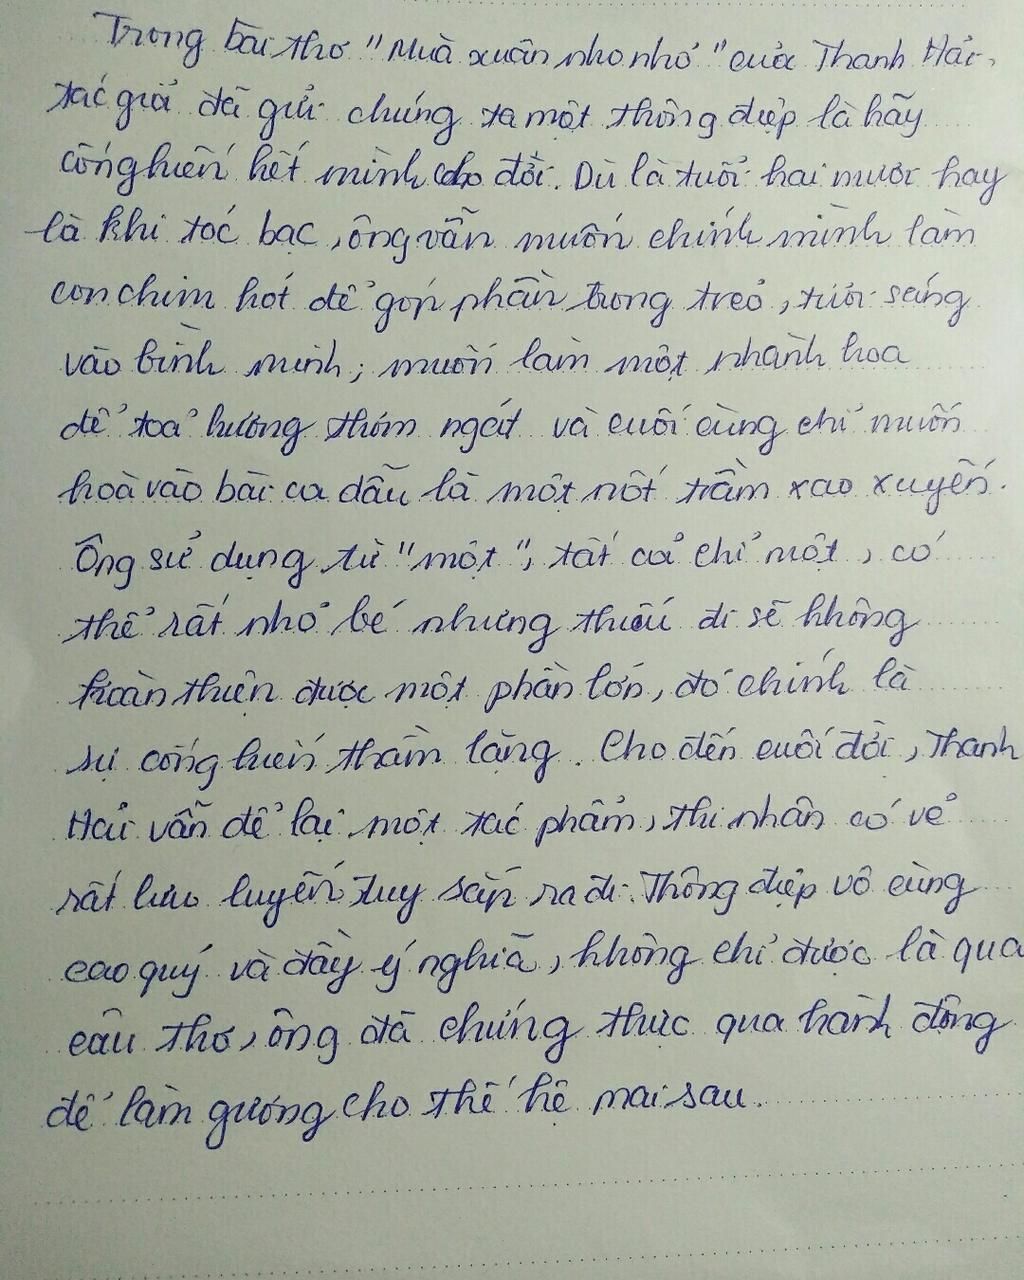 Trong bài thơ "Mùa xuân nho nhỏ" của Thanh Hải,
tác giả đã gửi chúng ta một thông điệp là hãy
cống hiến hết mình cho đời. Dù là tuổi hai mươi hay
là khi tóc bạc, ông vẫn muốn chính mình làm
con chim hót để góp phần trong trẻo, tươi sáng
vào bình minh; muốn làm một nhành hoa
để toả hương thơm ngát và cuối cùng chỉ muốn
hoà vào bài ca dẫu là một nốt trầm xao xuyến.
Ông sử dụng từ "một", tất cả chỉ một, có
thể rất nhỏ bé nhưng thiếu đi sẽ không
hoàn thiện được một phần lớn, đó chính là
sự cống hiến thầm lặng. Cho đến cuối đời, Thanh
Hải vẫn để lại một tác phẩm, thi nhân có vẻ
rất lưu luyến tuy sắp ra đi. Thông điệp vô cùng
cao quý và đầy ý nghĩa, không chỉ được là qua
câu thơ, ông đã chứng thực qua hành động
để làm gương cho thế hệ mai sau.